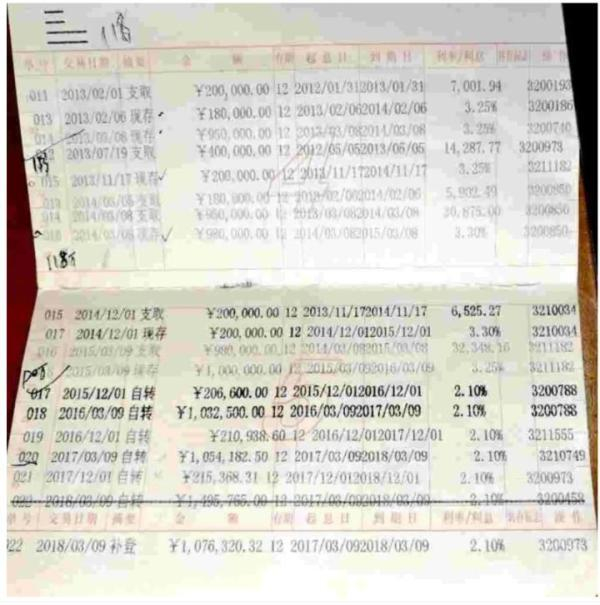 三 118
单号 交易日期 摘要 金 额 存期 起息日 到期日 利率/利息 操作
011 2013/02/01 支取 ¥200,000.00 12 2012/01/31 2013/01/31 7,001.94 3200193
013 2013/02/06 现存 ¥180,000.00 12 2013/02/06 2014/02/06 3.25% 3200186
014 2013/03/08 现存 ¥950,000.00 12 2013/03/08 2014/03/08 3.25% 3200740
012 2013/07/19 支取 ¥400,000.00 12 2012/05/05 2013/05/05 14,287.77 3200973
015 2013/11/17 现存 ¥200,000.00 12 2013/11/17 2014/11/17 3.25% 3211182
013 2014/03/08 支取 ¥180,000.00 12 2013/02/06 2014/02/06 3200850
014 2014/03/08 支取 ¥950,000.00 12 2013/03/08 2014/03/08 30,875.00 3200850
016 2014/03/08 现存 ¥980,000.00 12 2014/03/08 2015/03/08 3.30% 3200850
118万
015 2014/12/01 支取 ¥200,000.00 12 2013/11/17 2014/11/17 6,525.27 3210034
017 2014/12/01 现存 ¥200,000.00 12 2014/12/01 2015/12/01 3.30% 3210034
016 2015/03/09 支取 ¥980,000.00 12 2014/03/08 2015/03/08 32,348.16 3211182
2015/03/09 现存 ¥1,000,000.00 12 2015/03/09 2016/03/09 3.25% 3211182
017 2015/12/01 自转 ¥206,600.00 12 2015/12/01 2016/12/01 2.10% 3200788
018 2016/03/09 自转 ¥1,032,500.00 12 2016/03/09 2017/03/09 2.10% 3200788
019 2016/12/01 自转 ¥210,938.60 12 2016/12/01 2017/12/01 2.10% 3211555
020 2017/03/09 自转 ¥1,054,182.50 12 2017/03/09 2018/03/09 2.10% 3210749
021 2017/12/01 自转 ¥215,368.31 12 2017/12/01 2018/12/01 2.10% 3200973
022 2018/03/09 自转 ¥1,495,765.00 12 2017/03/09 2018/03/09 2.10% 3200458
单号 交易日期 摘要 金 额 存期 起息日 到期日 利率/利息 操作
022 2018/03/09 补登 ¥1,076,320.32 12 2017/03/09 2018/03/09 2.10% 3200973